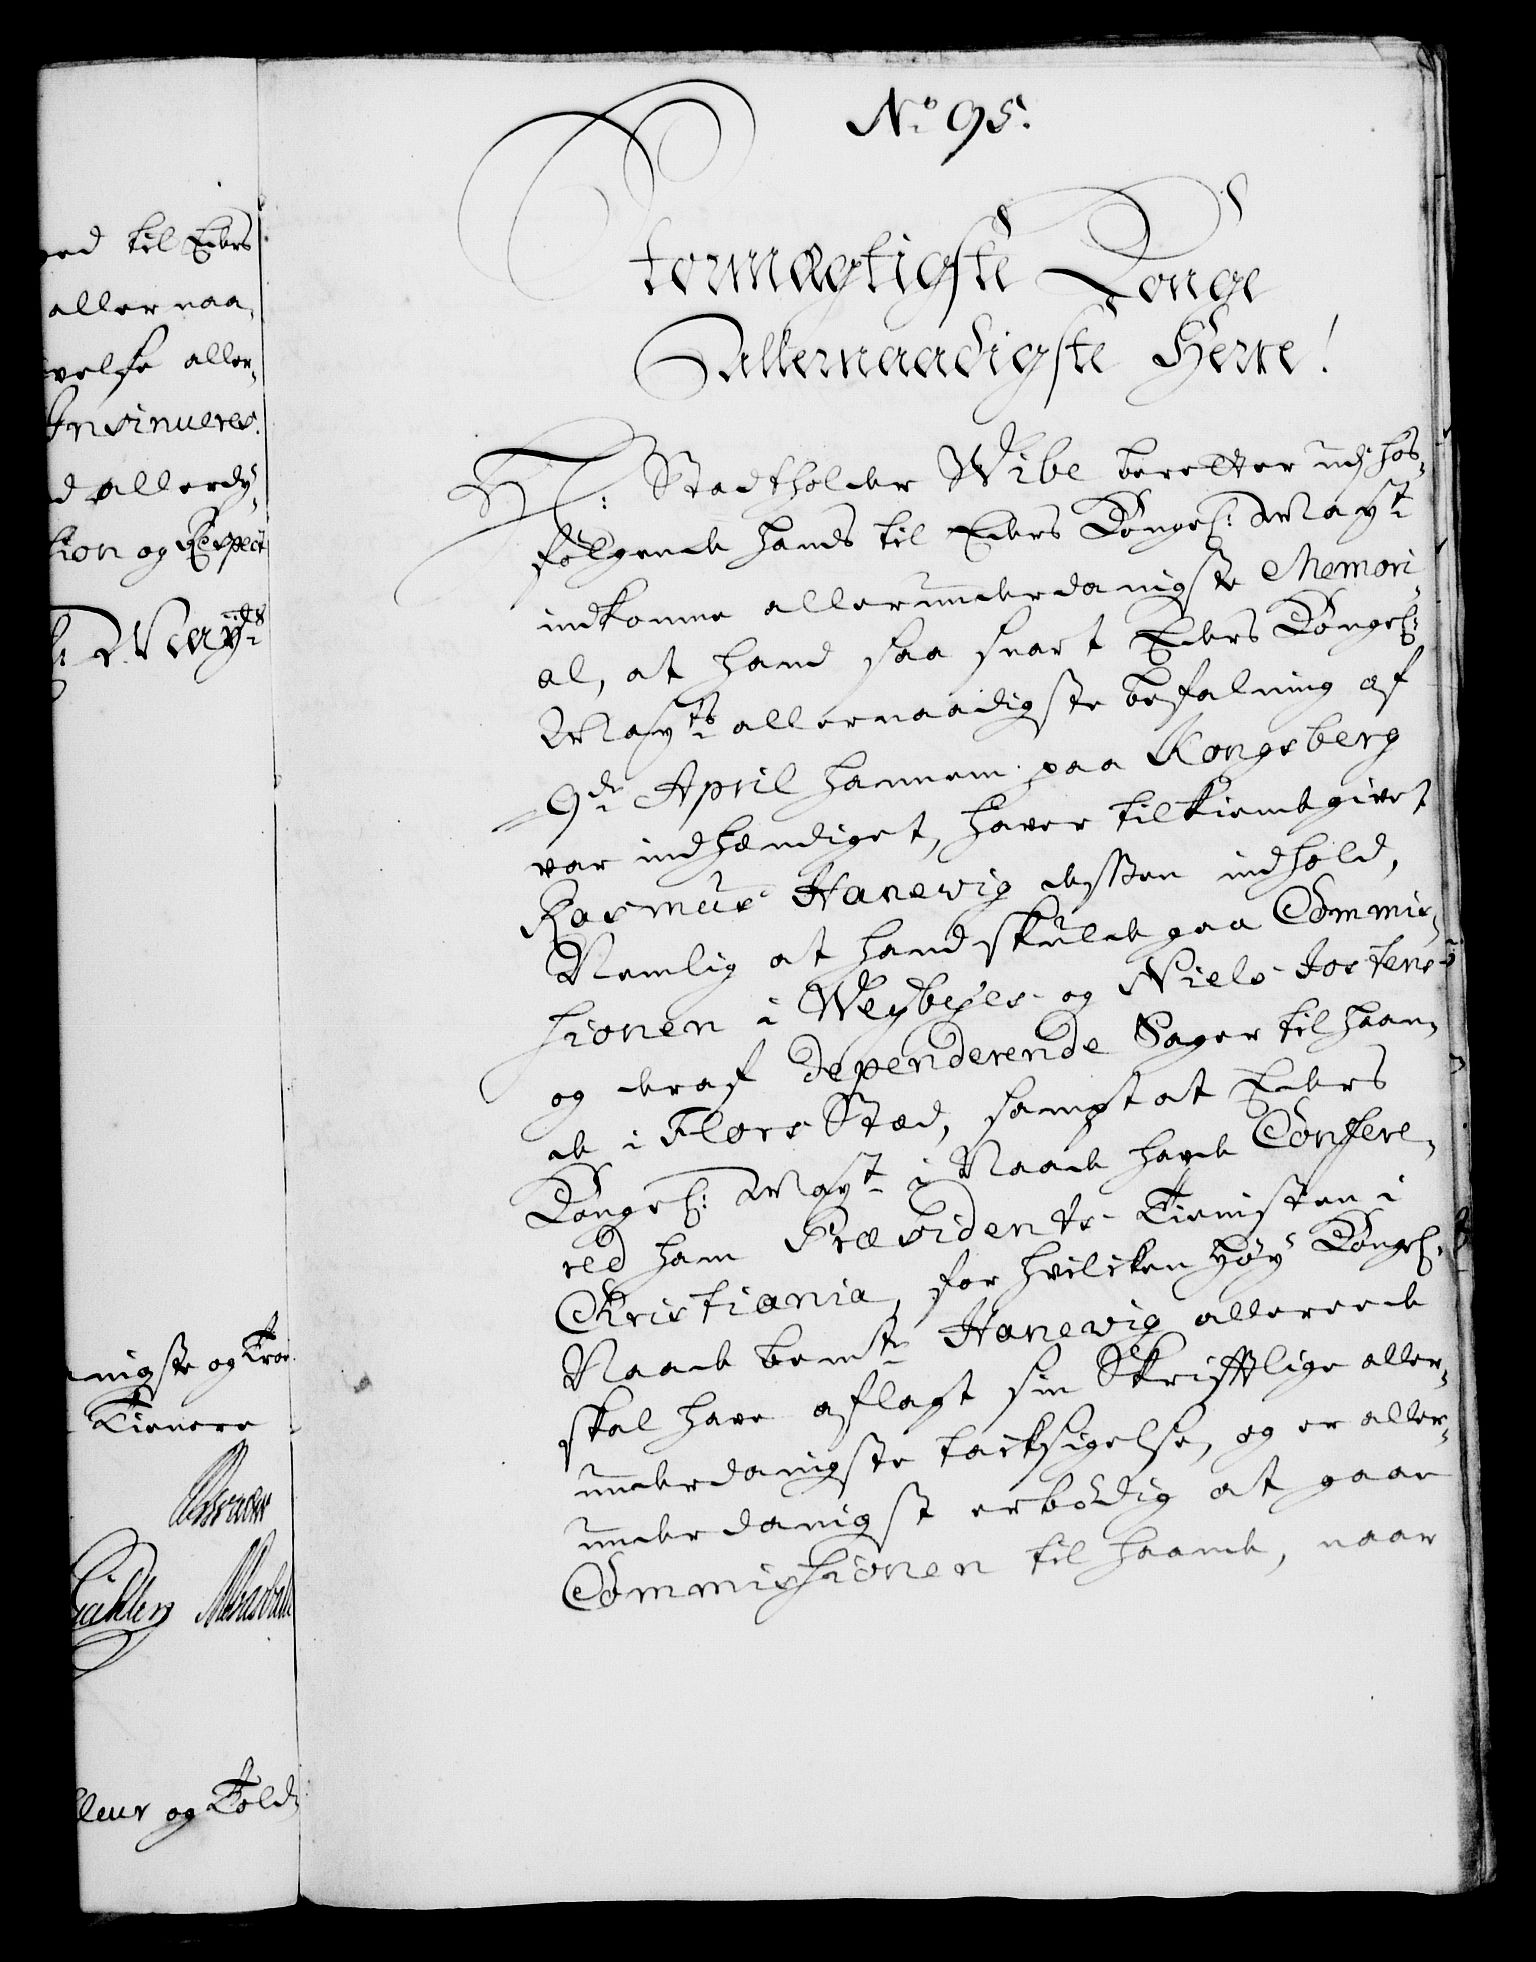 No 95.
Stormægtigste Konge
Allernaadigste Herre!
H: Stadtholder Wibe beretter udj hos-
følgende hands til Eders Kongel: Mayt
indkomne allerunderdanigste Memori-
al, at hand saa snart Eders Kongel:
Mayts allernaadigste befalning af
9de April hannem paa Kongsberg
var indhændiget, haver tilkiendegivet
Rasmus Hanewig dessen indhold,
Nemlig at hand skulde gaa Commis-
sionen i Weybyes og Niels Jostens
og deraf dependerende Sager til haan-
de i Flors Stæd, sampt at Eders
Kongel: Mayt i Naade havde Confere-
red ham Præsidents Tienisten i
Christiania, for hvilcken høy Kongel:
Naade bemte Hanewig allereede
skal have aflagt sin Skrifftlige aller-
underdanigste tacksigelse, og er aller-
underdanigst erbödig at gaae
Commissionen til haande, naar
ed til Eders
aller naa-
velse aller-
Insinueres.
d allerdy-
tion og Respect
l: Mayts
nigste og Troe
Tienere
leur og Told-